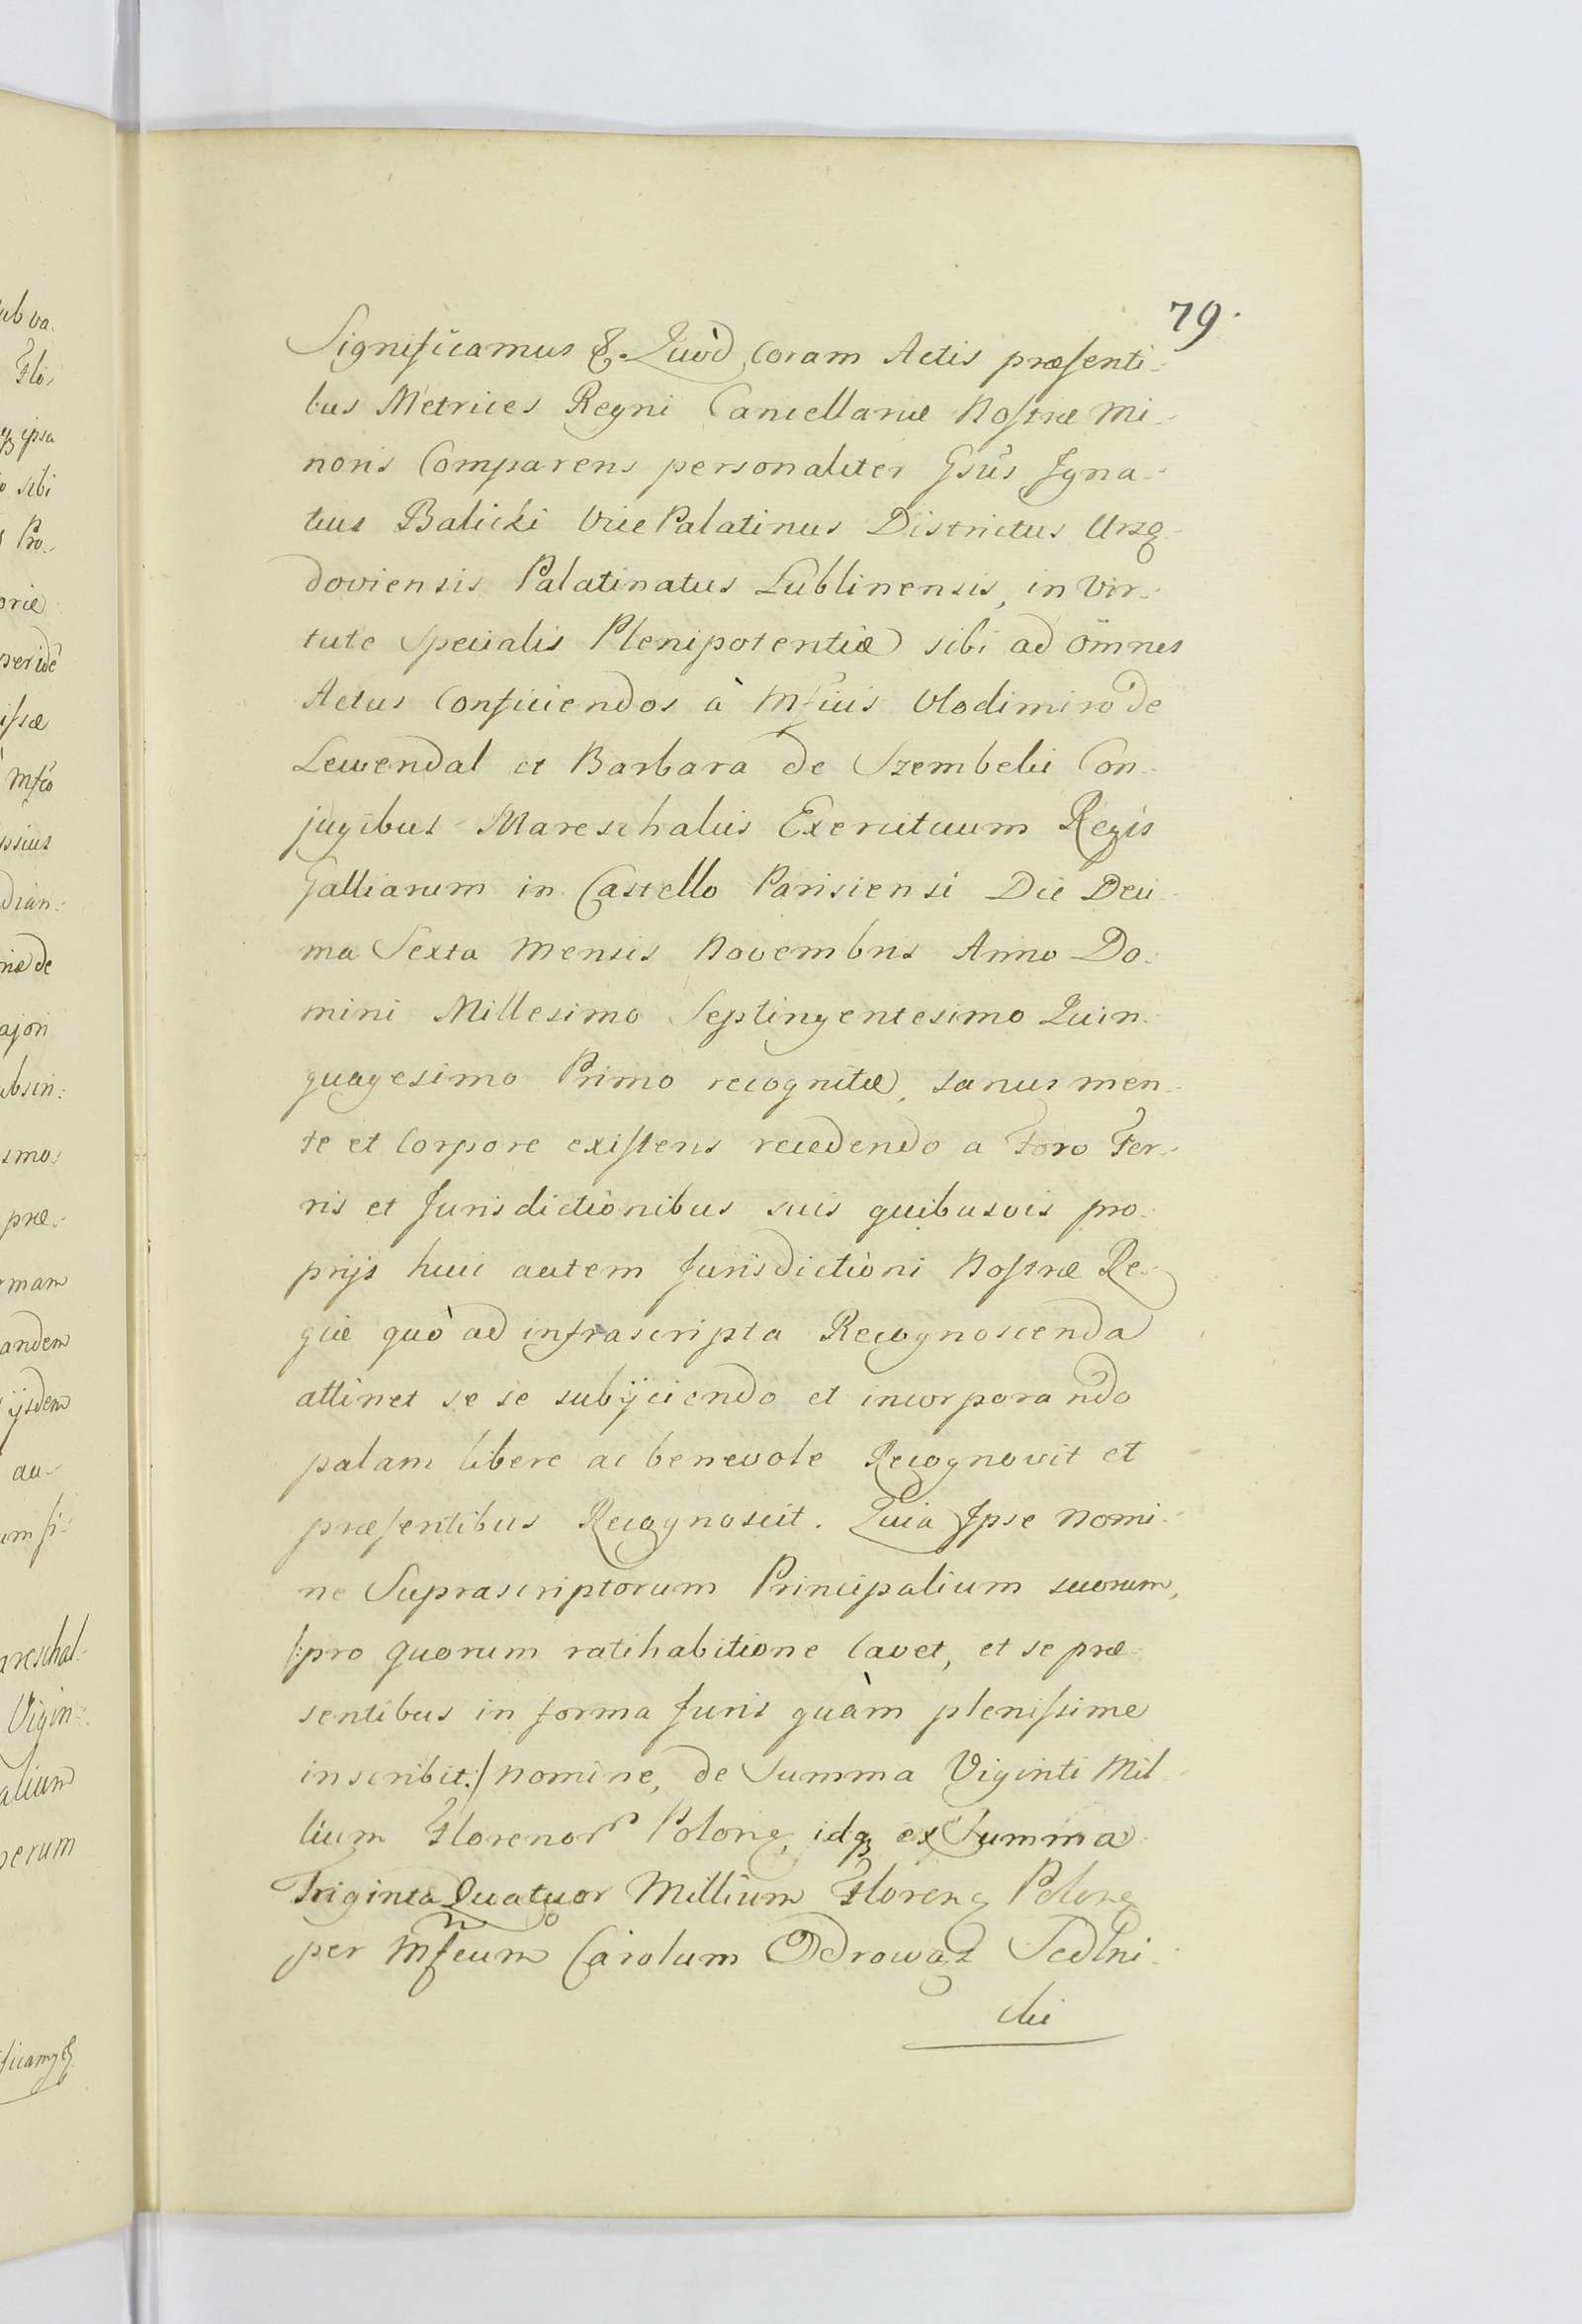 79.
Significamus &. Quòd Coram Actis præsenti-
bus Metrices Regni Cancellariæ Nostræ Mi-
noris Comparens personaliter Gsus Igna-
tius Balicki Vice Palatinus Districtus Urzę-
doviensis Palatinatus Lublinensis, in Vir-
tute Specialis Plenipotentiæ sibi ad om̃nes
Actus Conficiendos à Mficis Vlodimiro de
Lewendal et Barbara de Szembelii Con-
jugibus Mareschaliis Exercituum Regis
Galliarum in Castello Parisiensi Die Deci-
ma Sexta Mensis Novembris Anno Do-
mini Millesimo Septingentesimo Quin-
quagesimo Primo recognitæ, sanus men-
te et Corpore existens recedendo a Foro Ter-
ris et Jurisdictionibus suis quibusvis pro-
prijs huic autem Jurisdictioni Nostræ Re-
giæ quò ad infrascripta Recognoscenda
attinet se se subijciendo et incorporando
palam libere ac benevole Recognovit et
præsentibus Recognoscit. Quia Ipse Nomi-
ne Suprascriptorum Principalium suorum,
/:pro quorum ratihabitione Cavet, et se præ-
sentibus in forma Juris quàm plenissime
inscribit:/ nomine, de Summa Viginti Mil-
lium Florenor Polong, idq ex Summa
Triginta Quatuor Millium Floreng Polong
per Mficum Carolum Odrowąz Sedlni-
cki
ub va-
Flo-
q ipsa
o sibi
Pro-
oriæ
per idẽ
issæ
Mfco
psius
dian-
niæ de
ajori
ubscri-
simo
præ-
mam
andem
ijsdem
au-
um si-
areschal-
Vigin-
alium
perum
ficamg &